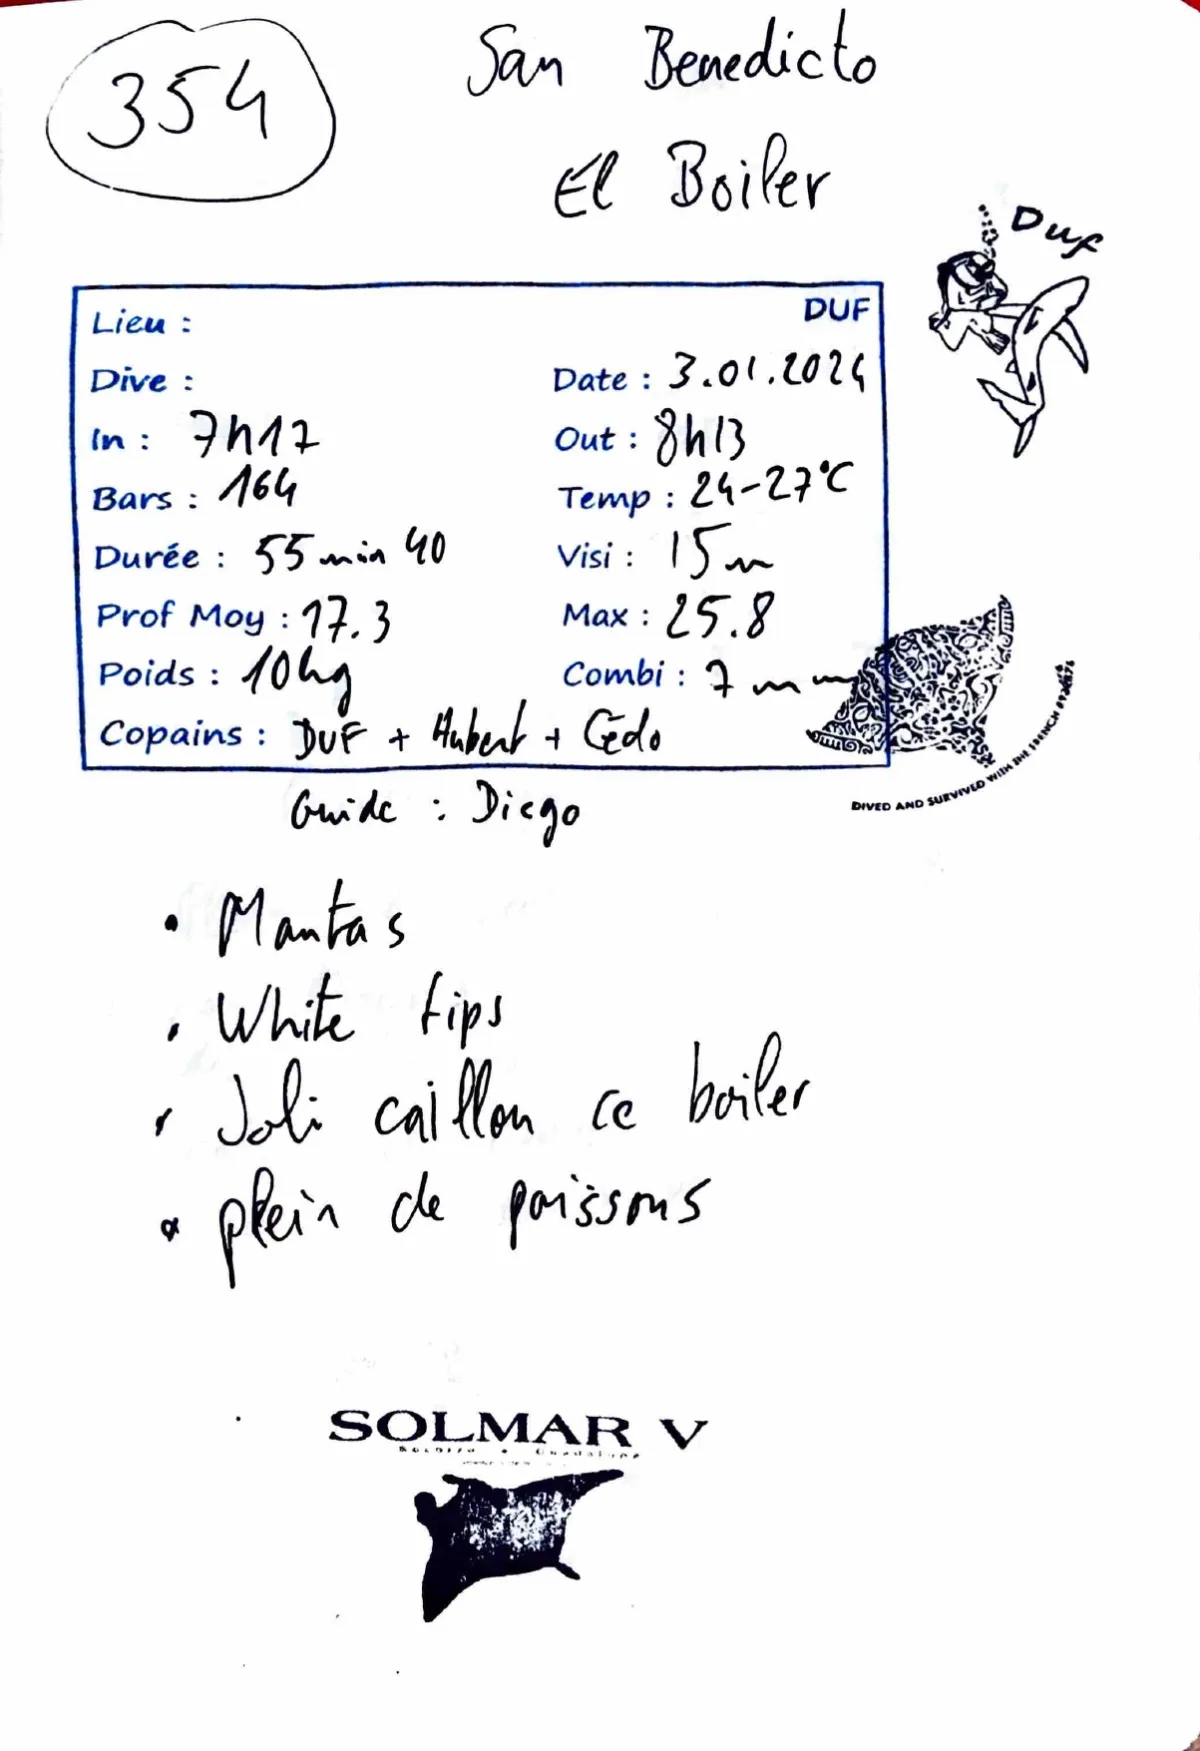 354
San Benedicto
El Boiler
Duf
DUF
Lieu :
Dive : Date : 3.01.2024
In : 7h17 Out : 8h13
Bars : 164 Temp : 24-27°C
Durée : 55 min 40 Visi : 15 m
Prof Moy : 17.3 Max : 25.8
Poids : 10kg Combi : 7 mm
Copains : DUF + Hubert + Cédo
DIVED AND SURVIVED WITH THE FRENCH
Guide : Diego
• Mantas
• White tips
• Joli caillou ce boiler
• plein de poissons
SOLMAR V